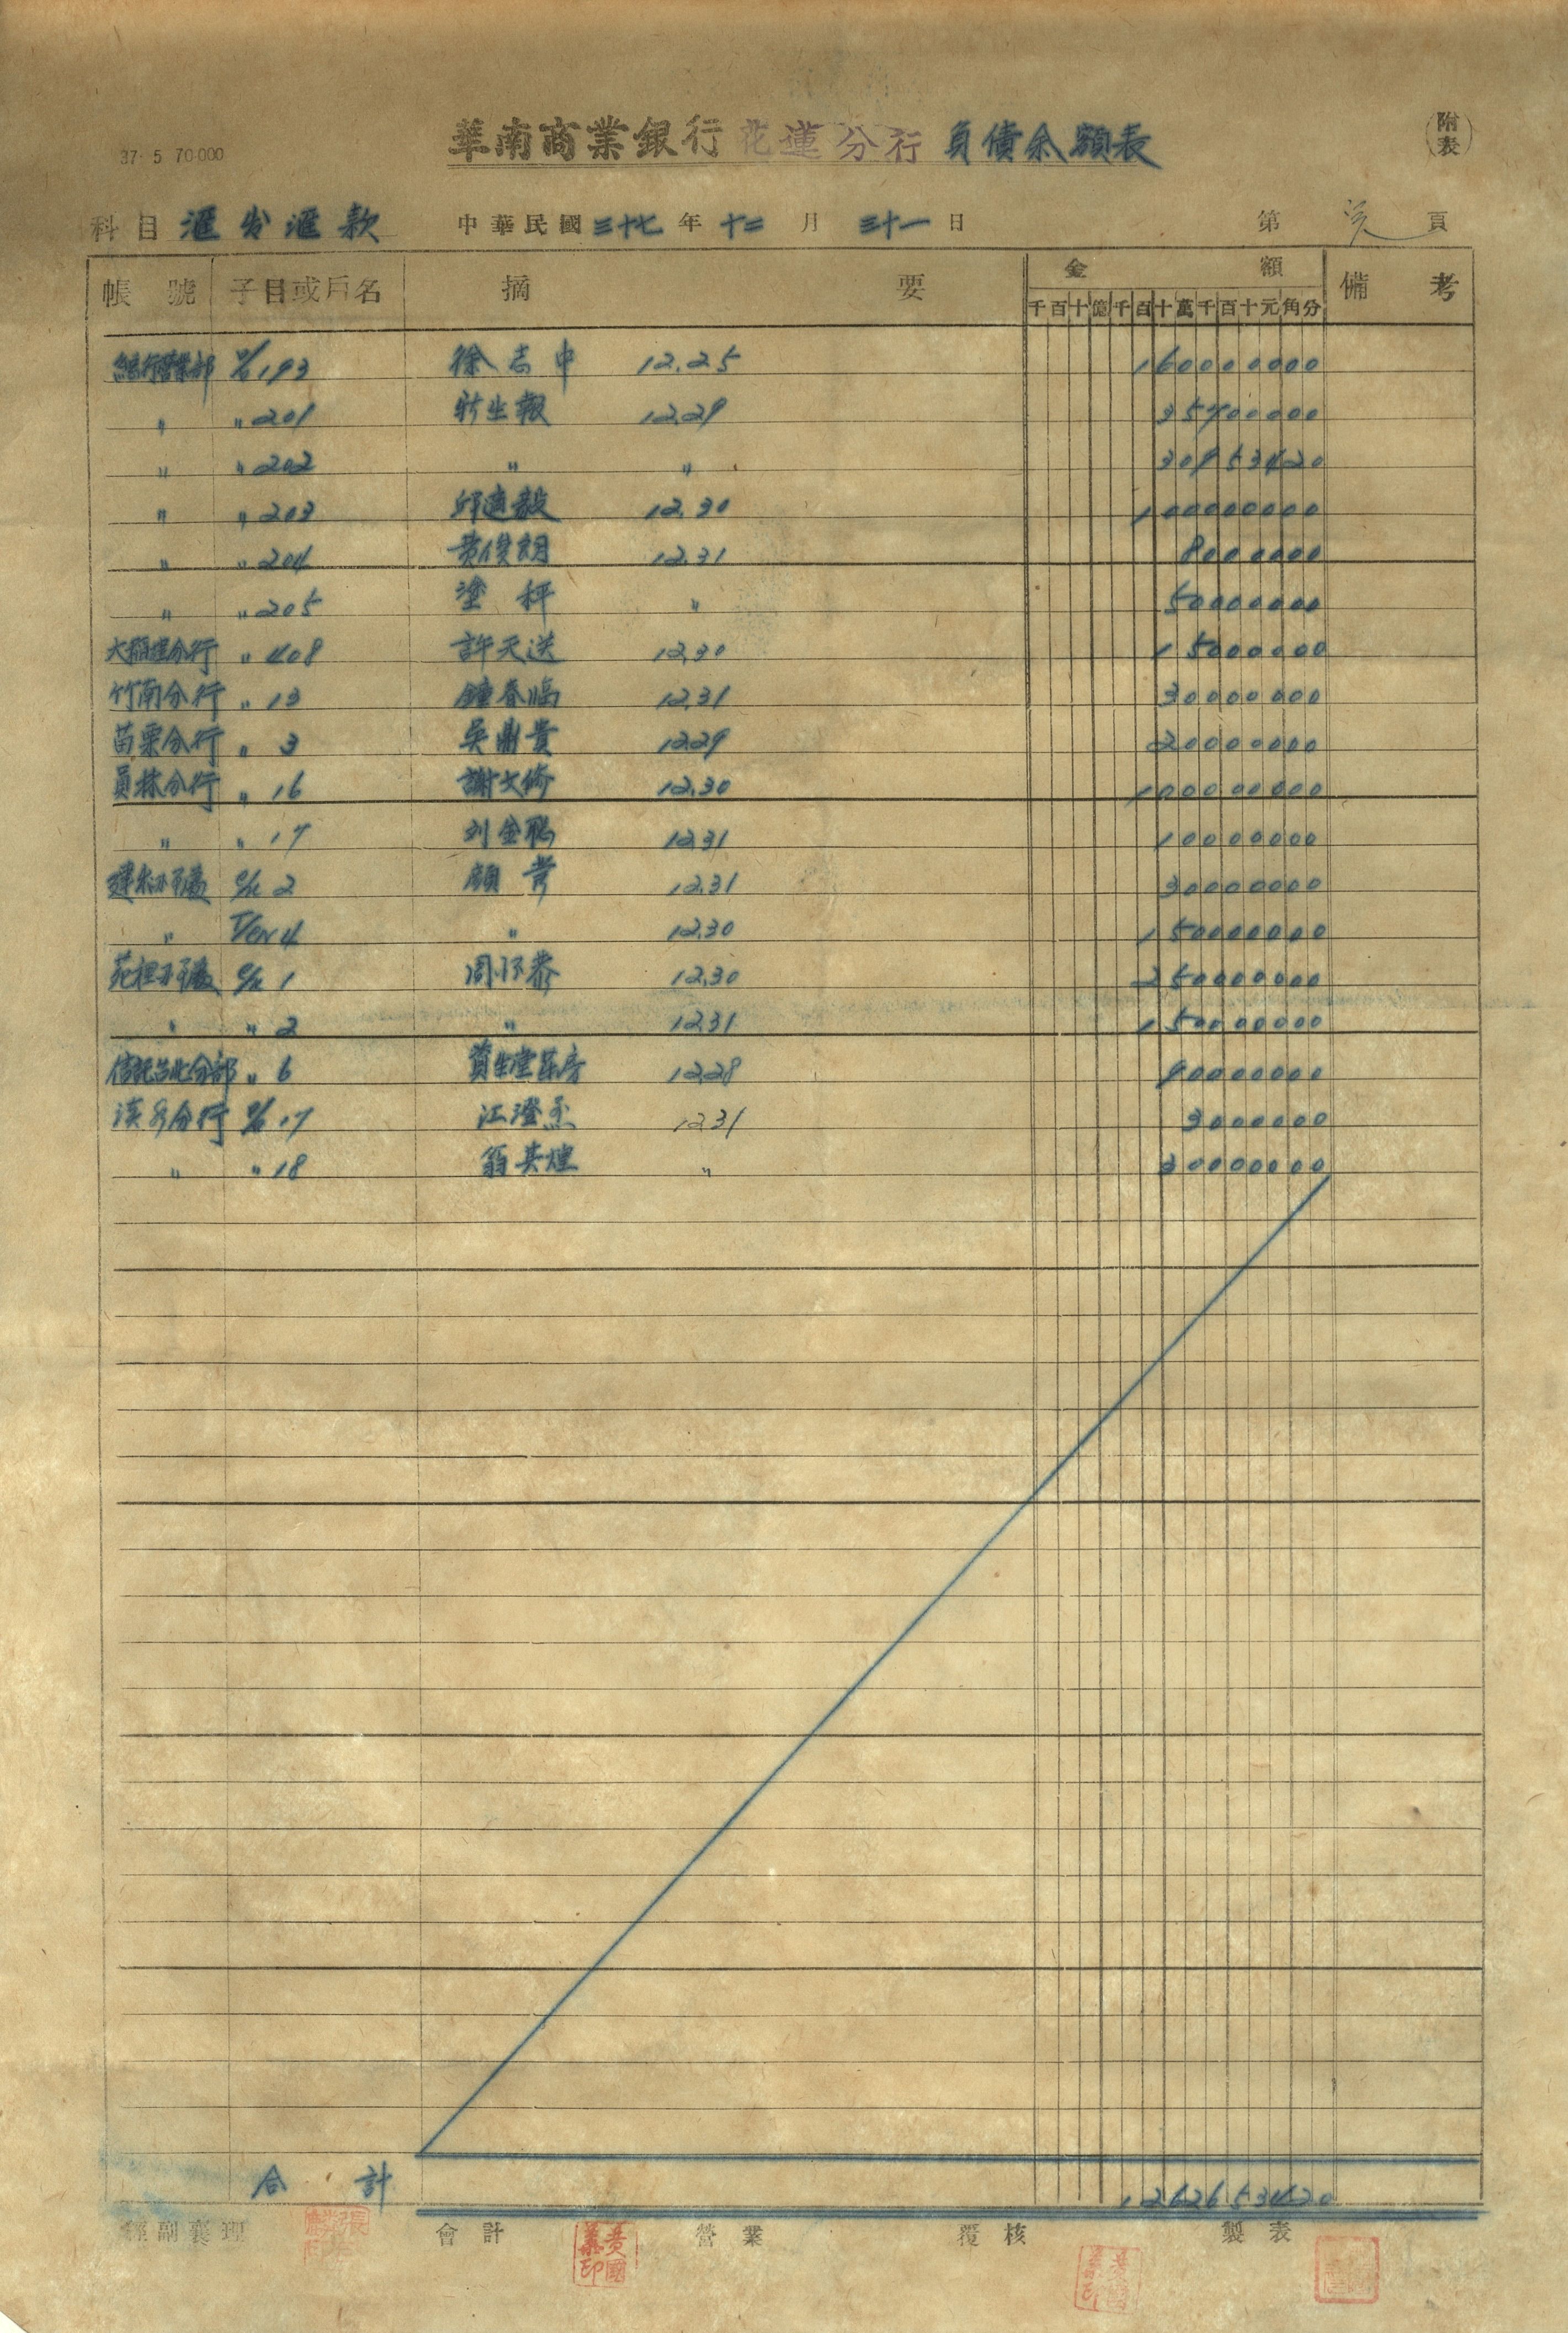 37. 5 70.000
華南商業銀行花蓮分行負債余額表
附表
科目 滙出滙款 中華民國三十七年十二月三十一日 第 頁
帳號 子目或戶名 摘要 金額 備考
千百十億千百十萬千百十元角分
總行營業部 193 徐吉中 12.25 160000000
〃 〃201 新生報 12.29 35700000
〃 〃202 〃 〃 30853420
〃 〃203 邱進毅 12.30 100000000
〃 〃204 黄俊朗 12.31 8000000
〃 〃205 塗秤 〃 50000000
大稻埕分行 〃408 許天送 12.30 15000000
竹南分行 〃13 鍾春臨 12.31 30000000
苗栗分行 〃3 吳鼎貴 12.29 20000000
員林分行 〃16 謝文 12.30 100000000
〃 〃17 刘金聰 12.31 10000000
2 顏 12.31 30000000
〃 4 〃 12.30 150000000
苑裡 1 周 12.30 250000000
〃 〃2 〃 12.31 150000000
信託台北分部 〃6 資生堂葯房 12.28 90000000
分行 17 江澄 12.31 3000000
〃 〃18 翁其煌 〃 30000000
合計 1262653420
經副襄理 會計 營業 覆核 製表
黃國義印